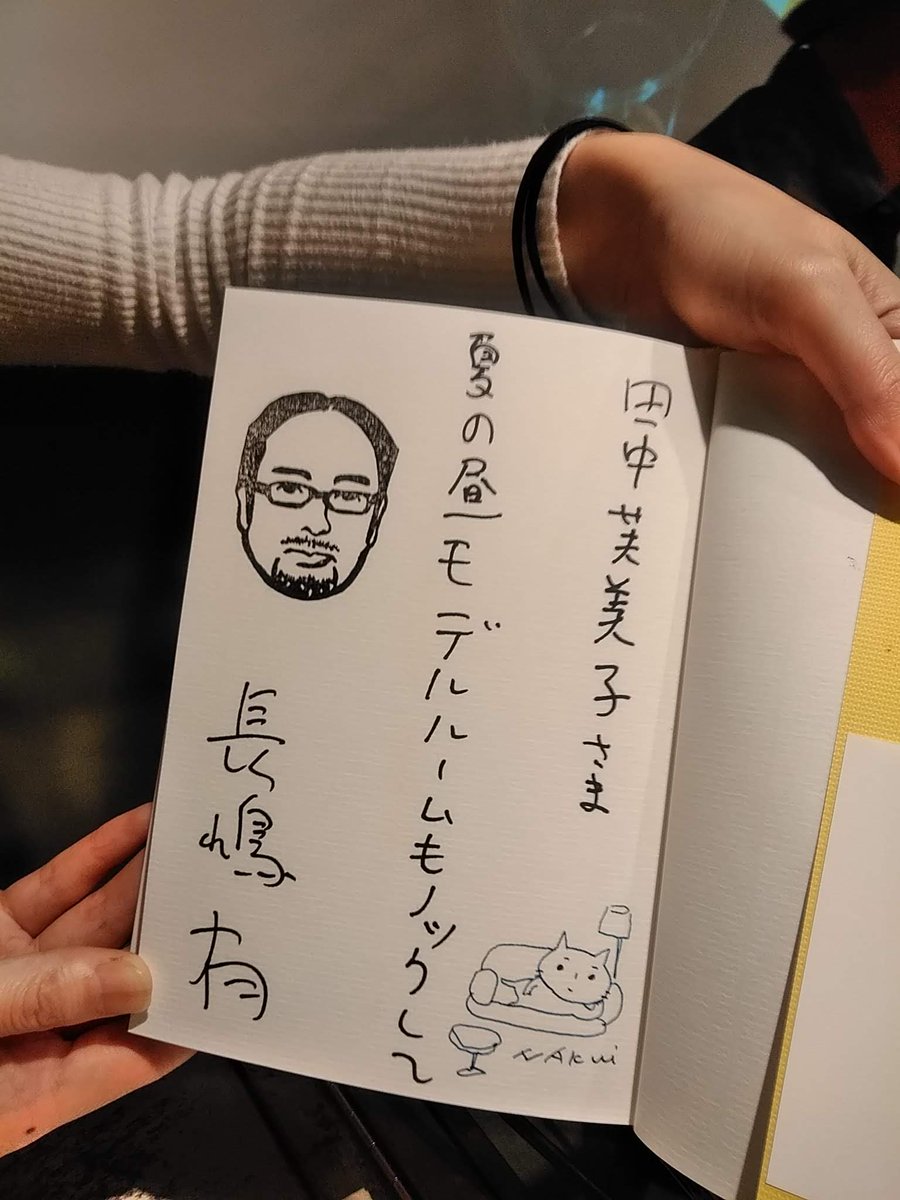 田中芙美子さま
夏の昼モデルルームもノックして
長嶋有
NAKUi